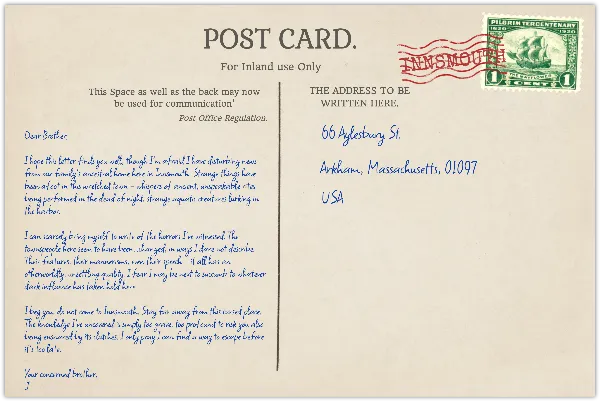 POST CARD.
For Inland use Only
This Space as well as the back may now
be used for communication'
Post Office Regulation.
Dear Brother,
I hope this letter finds you well, though I'm afraid I have disturbing news
from our family's ancestral home here in Innsmouth. Strange things have
been afoot in this wretched town - whispers of ancient, unspeakable rites
being performed in the dead of night, strange aquatic creatures lurking in
the harbor.
I can scarcely bring myself to write of the horrors I've witnessed. The
townspeople here seem to have been...changed, in ways I dare not describe.
Their features, their mannerisms, even their speech - it all has an
otherworldly, unsettling quality. I fear I may be next to succumb to whatever
dark influence has taken hold here.
I beg you, do not come to Innsmouth. Stay far away from this cursed place.
The knowledge I've uncovered is simply too grave, too profound to risk you also
being ensnared by its clutches. I only pray I can find a way to escape before
it's too late.
Your concerned brother,
J
THE ADDRESS TO BE
WRITTEN HERE.
66 Aylesbury St.
Arkham, Massachusetts, 01097
USA
INNSMOUTH
PILGRIM TERCENTENARY
1620 1920
THE MAYFLOWER
1 CENT 1